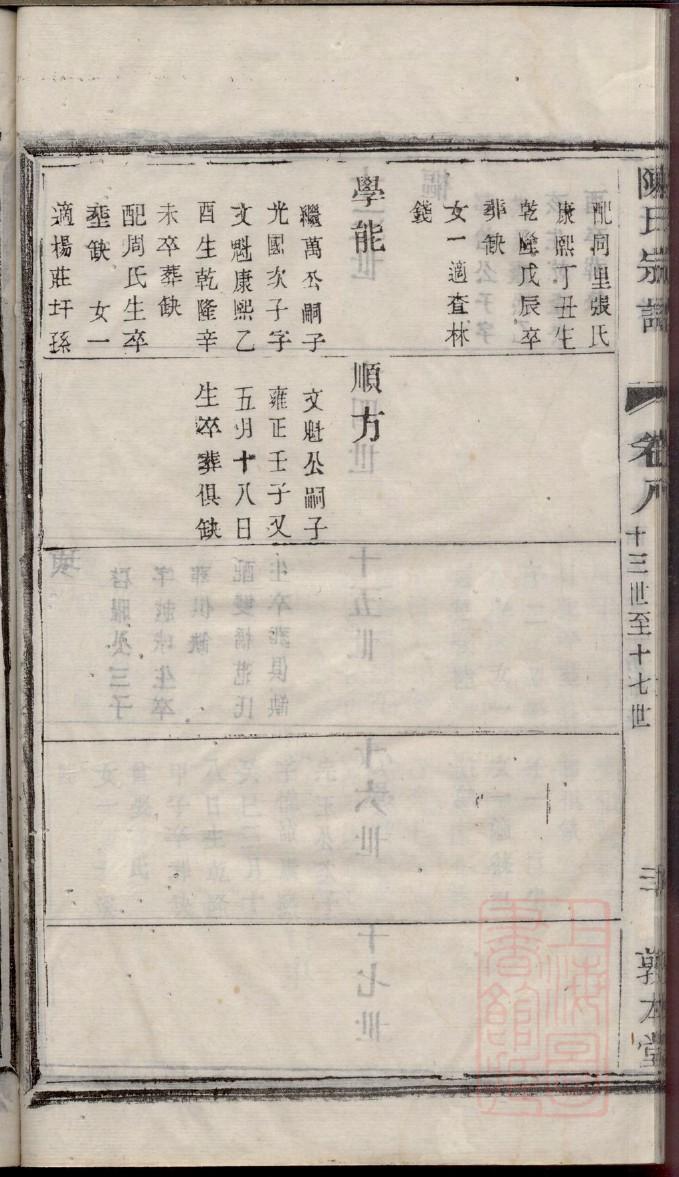 陳氏宗譜
卷八
十三世至十七世
敦本堂
配同里張氏
康熙丁丑生
乾隆戊辰卒
葬缺
女一適查林
錢
學能
繼萬公嗣子
光國次子字
文魁康熙乙
酉生乾隆辛
未卒葬缺
配周氏生卒
塟缺 女一
適楊莊圩孫
順方
文魁公嗣子
雍正壬子又
五月十八日
生卒葬俱缺
上海圖書館藏